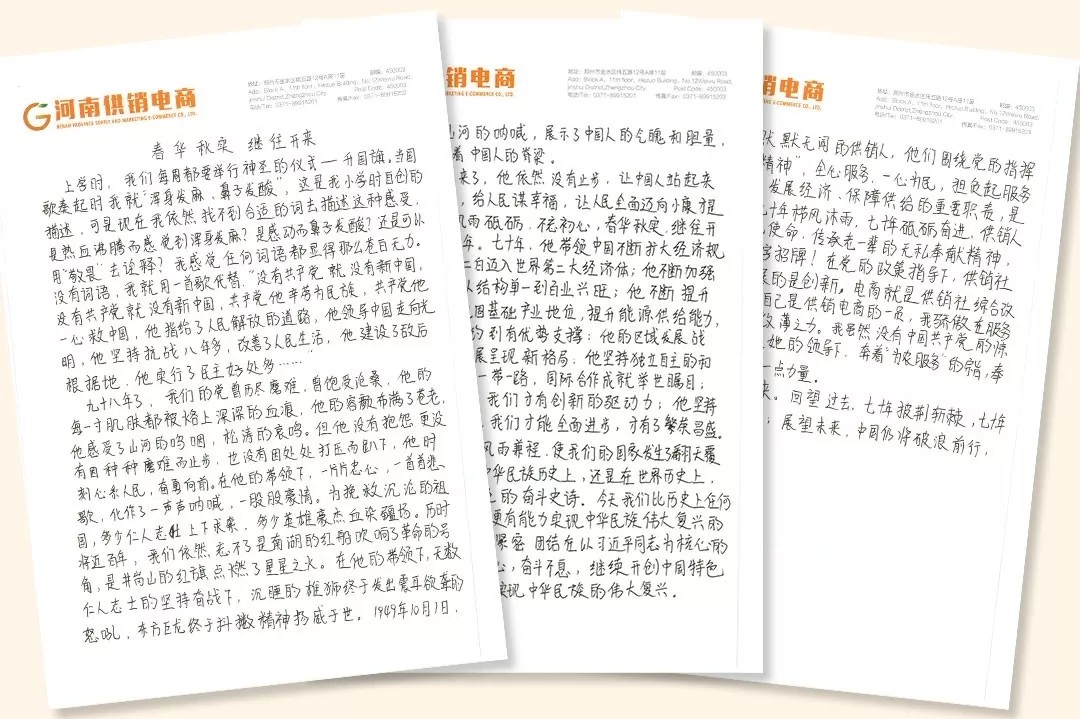 河南供销电商
HENAN PROVINCE SUPPLY AND MARKETING E-COMMERCE CO., LTD.
地址：郑州市金水区纬五路12号A座11层 邮编：450003
Add：Block A, 11th floor, Hezuo Building, No.12Weiwu Road,
Jinshui District,Zhengzhou City Post Code：450003
电话/Tel：0371-89915201 传真/Fax：0371-89915203
春华秋实 继往开来
上学时，我们每周都要举行神圣的仪式——升国旗。当国
歌奏起时我就“浑身发麻、鼻子发酸”，这是我小学时自创的
描述，可是现在我依然找不到合适的词去描述这种感受，
是热血沸腾而感觉到浑身发麻？是感动而鼻子发酸？还是可以
用“敬畏”去诠释？我感觉任何词语都显得那么苍白无力。
没有词语，我就用一首歌代替。“没有共产党就没有新中国，
没有共产党就没有新中国，共产党他辛劳为民族，共产党他
一心救中国，他指给了人民解放的道路，他领导中国走向光
明，他坚持抗战八年多，改善了人民生活，他建设了敌后
根据地，他实行了民主好处多……”
九十八年了，我们的党曾历尽磨难，曾饱受沧桑，他的
每一寸肌肤都被烙上深深的血浪，他的容颜布满了苍老，
他感受了山河的呜咽，松涛的哀鸣。但他没有抱怨更没
有因种种磨难而止步，也没有因处处打压而卧下，他时
刻心系人民，奋勇向前。在他的带领下，一片片忠心，一首首悲
歌，化作了一声声呐喊，一股股豪情。为挽救沉沦的祖
国，多少仁人志士上下求索，多少英雄豪杰血染疆场。历时
将近百年，我们依然忘不了是南湖的红船吹响了革命的号
角，是井岗山的红旗点燃了星星之火。在他的带领下，无数
仁人志士的坚持奋战下，沉睡的雄狮终于发出震耳欲聋的
怒吼，东方巨龙终于抖擞精神扬威于世。1949年10月1日，
销电商
MARKETING E-COMMERCE CO., LTD.
地址：郑州市金水区纬五路12号A座11层 邮编：450003
Add：Block A, 11th floor, Hezuo Building, No.12Weiwu Road,
Jinshui District,Zhengzhou City Post Code：450003
电话/Tel：0371-89915201 传真/Fax：0371-89915203
河的呐喊，展示了中国人的气魄和胆量，
着中国人的脊梁。
来了，他依然没有止步，让中国人站起来
，给人民谋幸福，让人民全面迈向小康才是
风雨砥砺，不忘初心，春华秋实，继往开
年。七十年，他带领中国不断扩大经济规
二白迈入世界第二大经济体；他不断加强
从结构单一到百业兴旺；他不断提升
固基础产业地位，提升能源供给能力，
约到有优势支撑；他的区域发展战
展呈现新格局，他坚持独立自主的和
一带一路，国际合作成就举世瞩目；
，我们才有创新的驱动力；他坚持
，我们才能全面进步，才有了繁荣昌盛。
风雨兼程，使我们的国家发生了翻天覆
华民族历史上，还是在世界历史上，
的奋斗史诗。今天我们比历史上任何
更有能力实现中华民族伟大复兴的
紧密团结在以习近平同志为核心的
心，奋斗不息，继续开创中国特色
实现中华民族的伟大复兴。
电商
MERCE CO., LTD.
地址：郑州市金水区纬五路12号A座11层 邮编：450003
Add：Block A, 11th floor, Hezuo Building, No.12Weiwu Road,
Jinshui District,Zhengzhou City Post Code：450003
电话/Tel：0371-89915201 传真/Fax：0371-89915203
默无闻的供销人，他们围绕党的指挥
精神”，全心服务，一心为民，担负起服务
发展经济、保障供给的重要职责，是
十年栉风沐雨，七十年砥砺奋进，供销人
使命，传承老一辈的无私奉献精神，
字招牌！在党的政策指导下，供销社
展的是创新。电商就是供销社综合改
自己是供销电商的一员，我骄傲在服务
微薄之力。我虽然没有中国共产党的惊
她的领导下，奔着“为农服务”的宗旨，奉
一点力量。
来。回望过去，七十年披荆斩棘，七十年
；展望未来，中国仍将破浪前行，